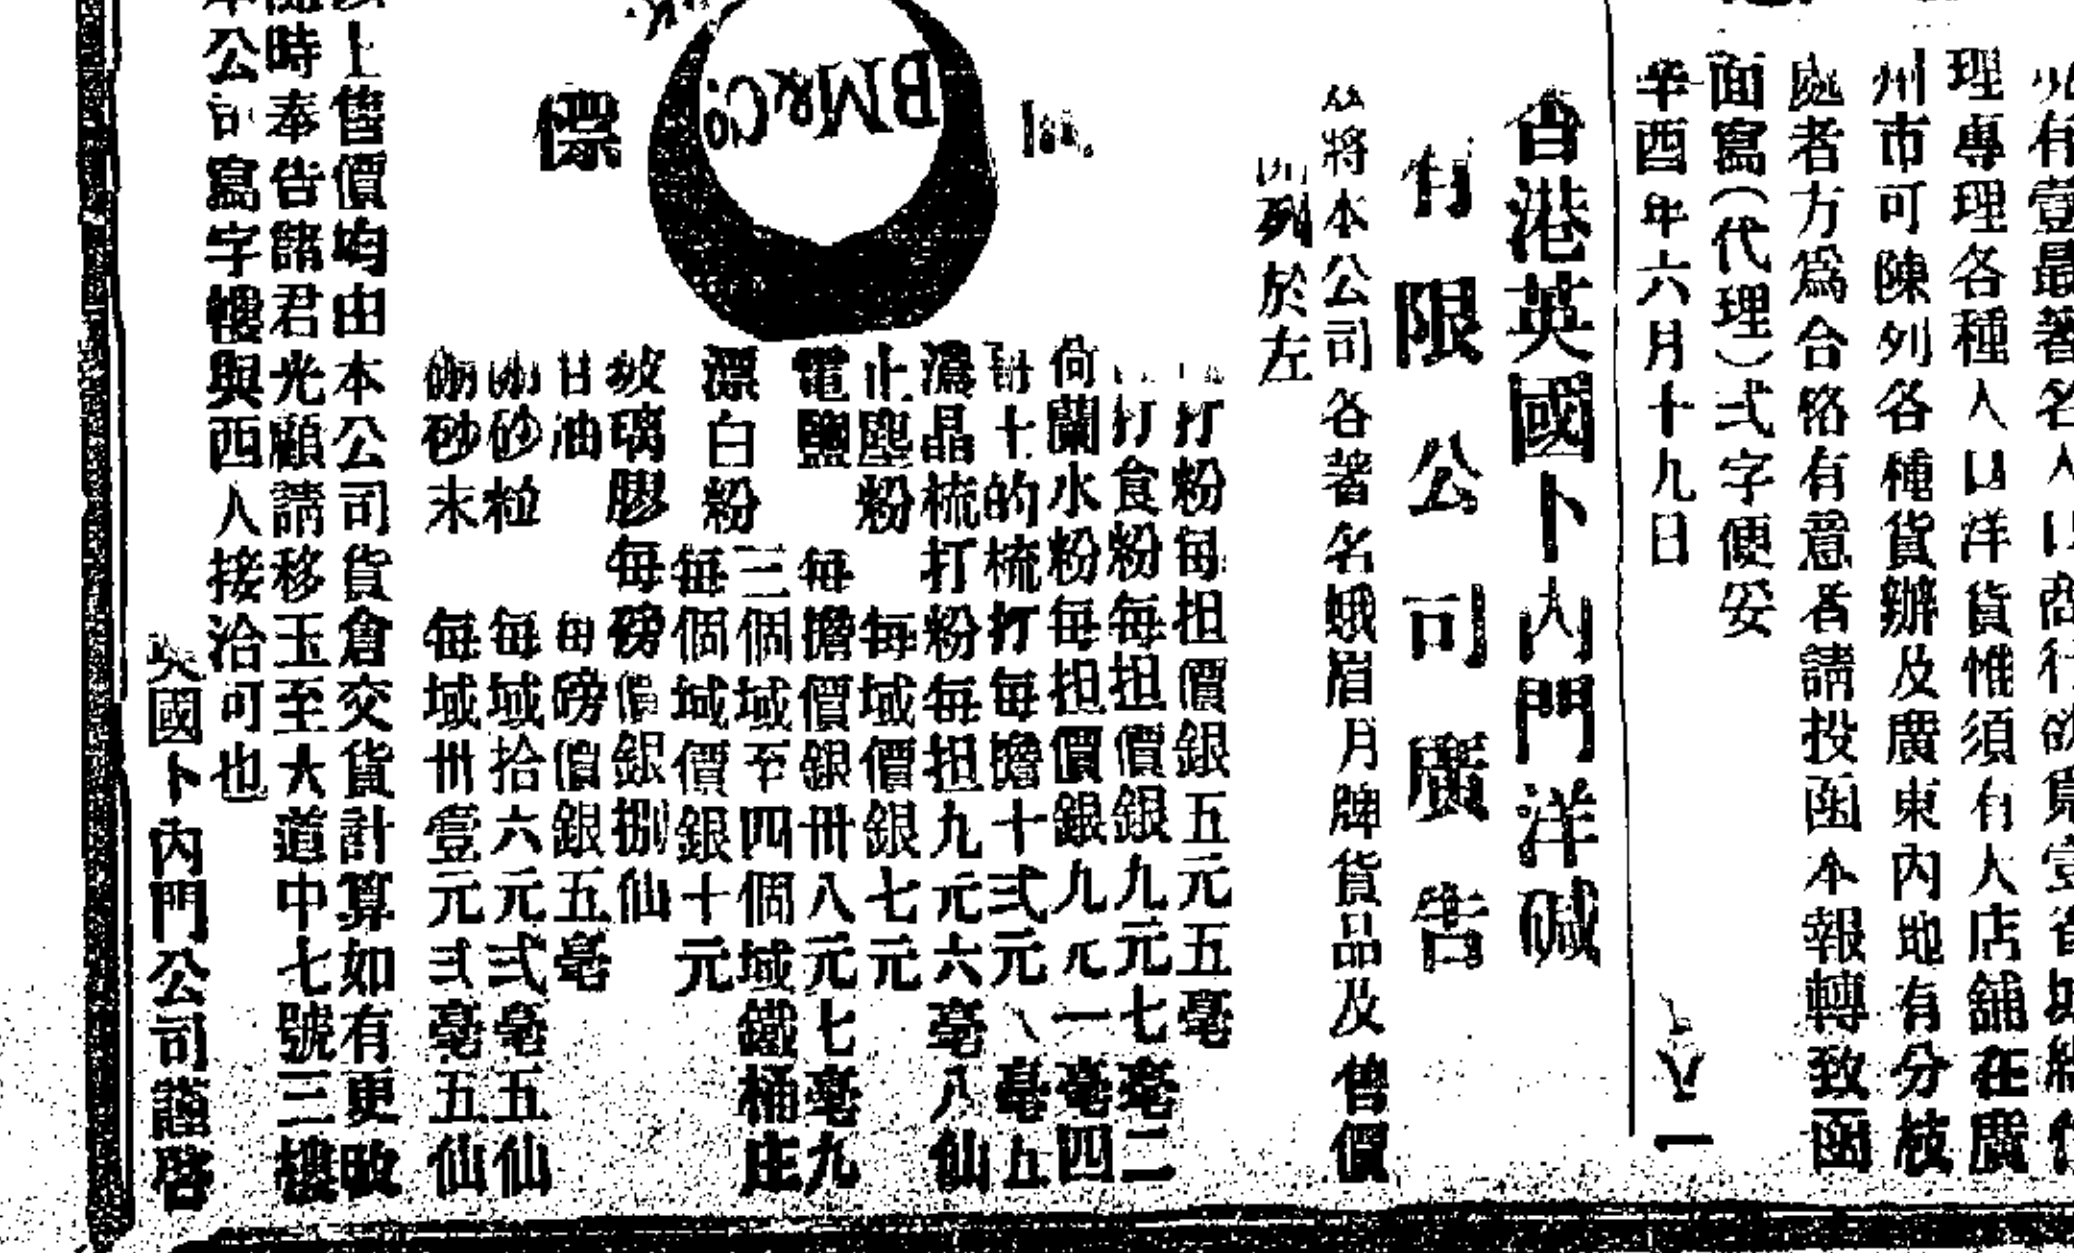 有壹最著名人口商行欲覓壹省城經
理專理各種入口洋貨惟須有大店舖在廣
州市可陳列各種貨辦及廣東內地有分枝
處者方為合格有意者請投函本報轉致函
面寫(代理)弍字便妥
辛酉年六月十九日
省港英國卜內門洋碱
有限公司廣告
茲將本公司各著名蛾眉月牌貨品及售價
列於左
打粉每担價銀五元五毫
打食粉每担價銀九元七毫二
荷蘭水粉每担價銀九元一毫四
士的梳打每擔十弍元八毫五
濃晶梳打粉每担九元六毫八仙
止塵粉 每域價銀七元
電鹽 每擔價銀卅八元七毫九
漂白粉 三個域至四個域鐵桶庄
每個域價銀十元
玻璃膠每磅價銀捌仙
甘油 每磅價銀五毫
硼砂粒 每域拾六元弍毫五仙
硼砂末 每域卅壹元弍毫五仙
BM&Co.
標
上售價均由本公司貨倉交貨計算如有更改
隨時奉告諸君光顧請移玉至大道中七號三樓
本公司寫字樓與西人接洽可也
英國卜內門公司謹啓